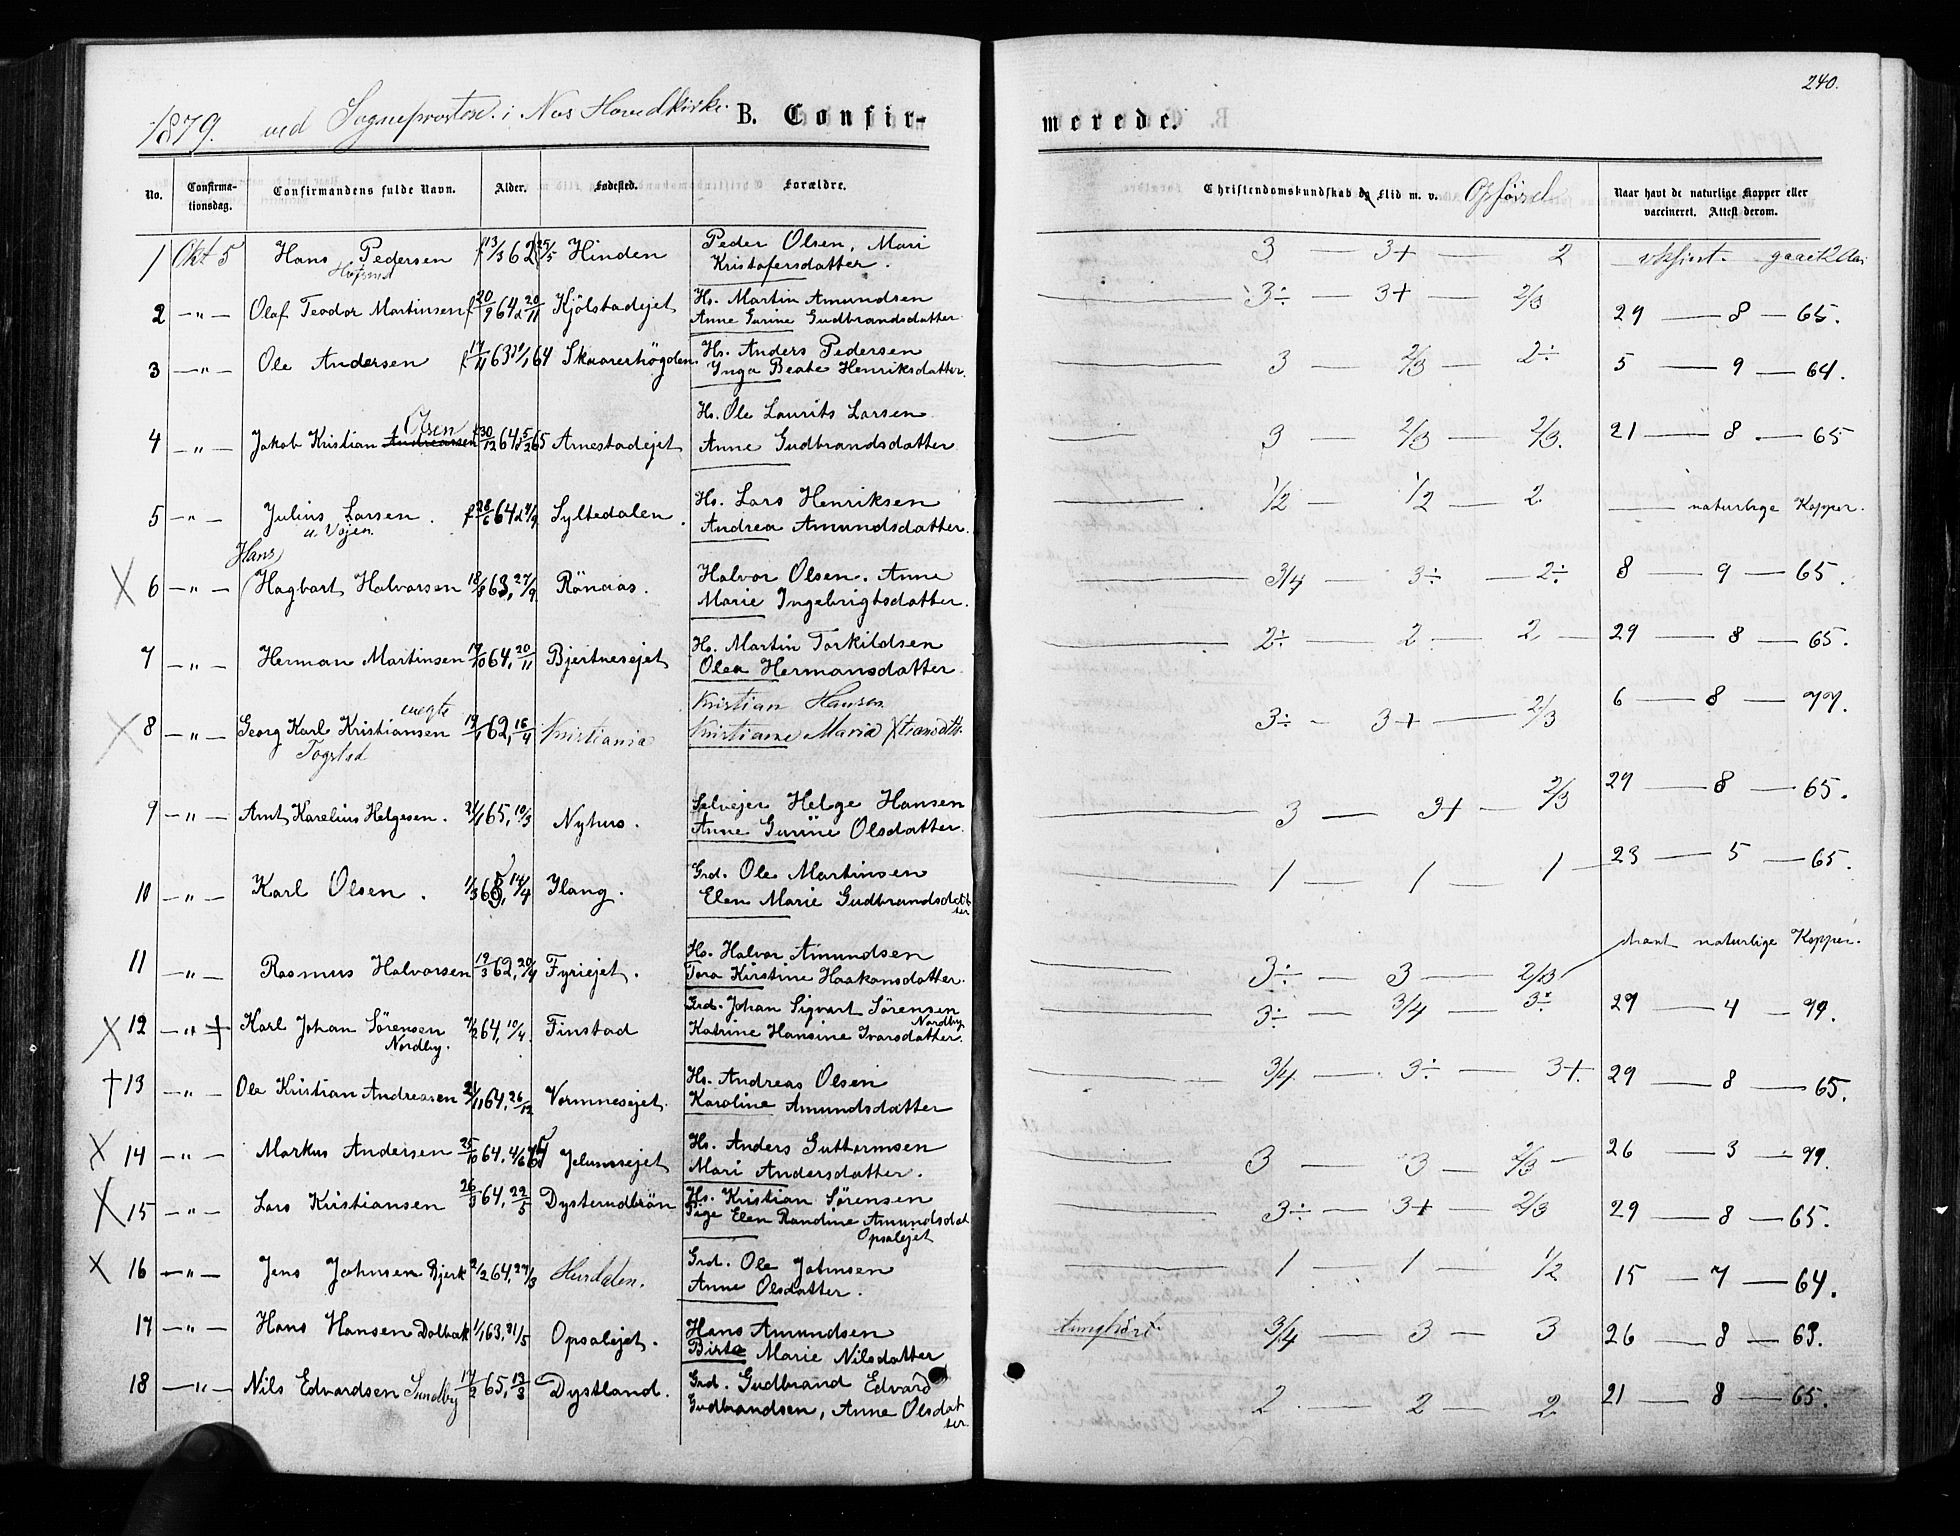 240.
1879. ved Sogneprosten i Nes Hovedkirke B. Confir-
merede.
No. Confirma-tionsdag. Confirmandens fulde Navn. Alder. Fødested. Forældre. Christendomskundskab og Flid m. v. Opførsel Naar havt de naturlige Kopper eller vaccineret. Attest derom.
1 Okt 5 Hans Pedersen 62 Hinden Peder Olsen, Mari Kristofersdatter. 3 — 3+ 2
2 — " — Olaf Teodor Martinsen f 20/9 64 d 20/11 Kjölstadejet Hs. Martin Amundsen Anne Gurine Gudbrandsdatter 3÷ — 3+ — 2/3 29 — 8 — 65.
3 — " — Ole Andersen f 63 64 Skaarerhögden Hs. Anders Pedersen Inga Beate Henriksdatter. 3 — 2/3 — 2÷ 5 — 9 — 64.
4 — " — Jakob Kristian Andreassen Olsen f 30/12 64 5/2 65 Arnestadejet Hs. Ole Laurits Larsen Anne Gudbrandsdatter 3 — 2/3 — 2/3. 21 — 8 — 65
5 — " — Julius Larsen. f 28/6 64 d 4/9 Syltedalen. Hs. Lars Henriksen Andrea Amundsdatter. 1/2 — 1/2 — 2 — naturlige Kopper.
X 6 — " — Hans Hagbart Halvorsen 63, 27/9 Rönaas. Halvor Olsen. Anne Marie Ingebrigtsdatter. 3/4 — 3÷ — 2÷ 8 — 9 — 65.
7 — " — Herman Martinsen 64, 20/11 Bjertnesejet Hs. Martin Torkildsen Olea Hermansdatter 2÷ — 2 — 2 — 29 — 8 — 65.
X 8 — " — Georg Karl Kristiansen uægte 62, 16/4 Kristiania Kristian Hansen Kristiane Maria 3÷ — 3+ — 2/3 6 — 8 — 77.
9 — " — Arnt Karelius Helgesen. 65, 10/3 Nyhus. Selvejer Helge Hansen Anne Gurine Olsdatter. 3 — 3+ — 2/3 29 — 8 — 65.
10 — " — Karl Olsen. 1/3 14/4 Ilang. Grd. Ole Martinsen Elen Marie Gudbrandsdatter 1 — 1 — 1 — 23 — 5 — 65.
11 — " — Rasmus Halvorsen 19/3 62, 20/4 Fyriejet. Hs. Halvor Amundsen Tora Kirstine Haakonsdatter. 3÷ — 3 — 2/3 havt naturlige Kopper.
X 12 — " + Karl Johan Sörensen Nordby. 64, 10/4. Finstad Grd. Johan Sigvart Sörensen Nordby Katrine Hansine Ivarsdatter. 3÷ — 3/4 — 3÷ 29 — 4 — 79.
† 13 — " — Ole Kristian Andreasen 21/11 64, 26/12 Vormnesejet. Hs. Andreas Olsen Karoline Amundsdatter 3/4 — 3÷ — 3+. 29 — 8 — 65.
X 14 — " — Markus Andersen 25/10 64, 4/6 65 Hs. Anders Guttormsen Mari Andersdatter. 3 — 3 — 2/3 — 26 — 3 — 79.
X 15 — " — Lars Kristiansen 64, 22/5 Dysterudbrön Hs. Kristian Sörensen Pige Elen Randine Amundsdat Opsalejet 3÷ — 3+ — 2/3 29 — 8 — 65.
X 16 — " — Jens Johnsen Bjerk 2/2 64, 27/3 Hurdalen. Grd. Ole Johnsen Anne Olsdatter. 1 — 1 — 1/2 15 — 7 — 64.
17 — " — Hans Hansen Dalbak 1/1 63, 31/5 Opsalejet. Hans Amundsen Birte Marie Nilsdatter tunghört 3/4 — 3 — 3 26 — 8 — 63.
18 — " — Nils Edvardsen Sundby 17/2 65, 19/3 Dystland. Grd. Gudbrand Edvard Gudbrandsen, Anne Olsdatter. 2 — 2 — 2 21 — 8 — 65.